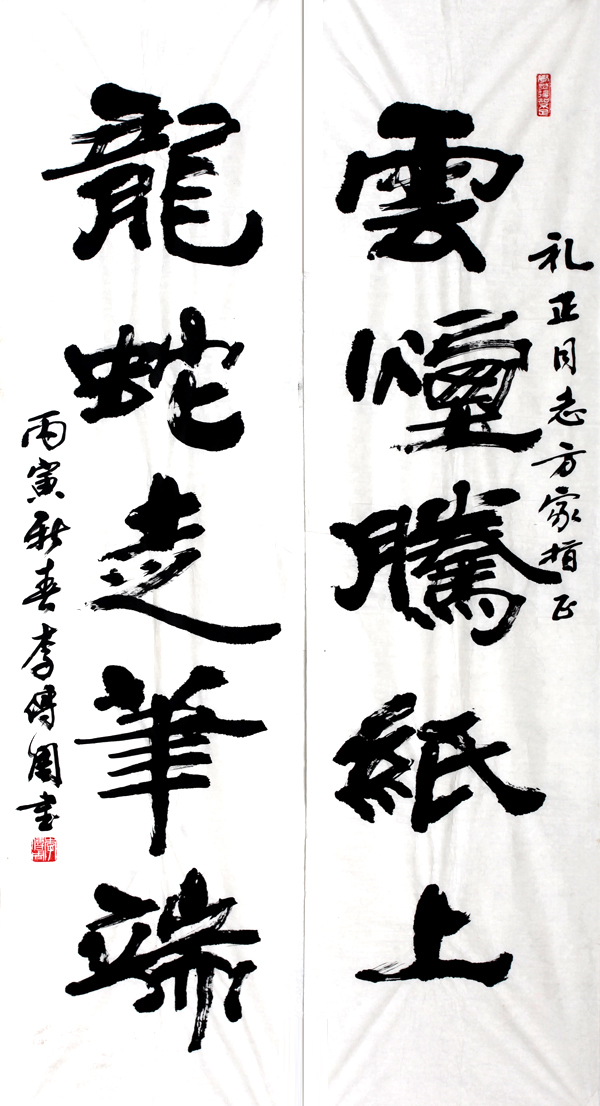 礼正同志方家指正
雲煙騰紙上
龍蛇走筆端
丙寅新春李傳周書